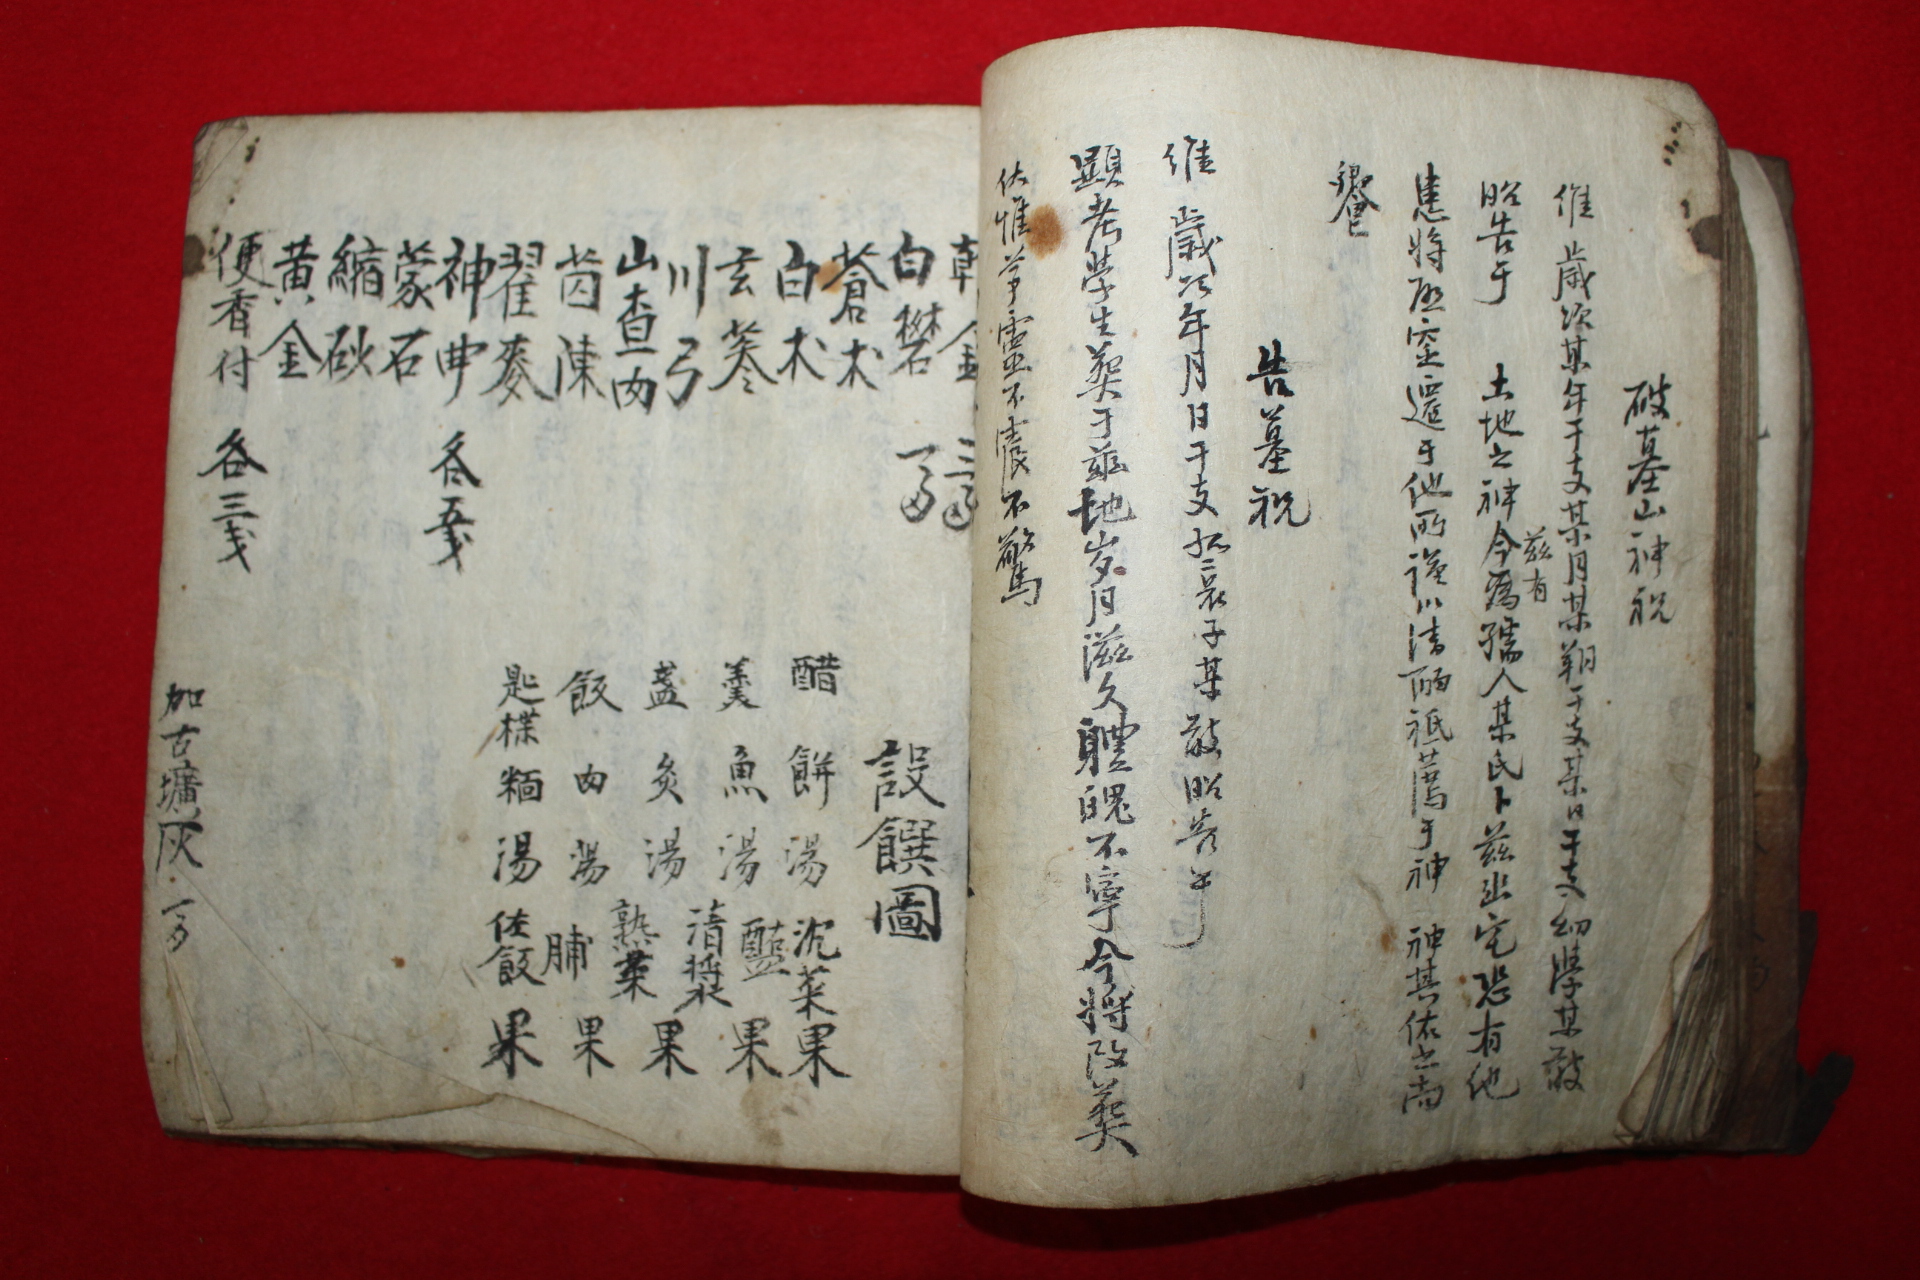 破墓山神祝
維 歲次某年干支某月某朔干支某日干支幼學某敢
昭告于 土地之神今爲孺人某氏卜玆幽宅恐有他
玆有
患將啓窆遷于他所謹以淸酌祗薦于神 神其佑之尙
饗
告墓祝
維 歲次年月日干支孤哀子某敢昭告于
顯考學生葬于玆地岁月滋久體魄不寧今將改葬
伏惟尊靈不震不驚
白礬
蒼朮
白朮
玄蔘
川弓
山查肉
茵陳
瞿麥
神曲 各五戔
蒙石
縮砂
黃金
便香付 各三戔
設饌圖
醋 餠 湯 沈菜 果
羹 魚 湯 醢 果
淸漿
盞 炙 湯 熟菜 果
飯 肉 湯 脯 果
匙楪 麵 湯 佐飯 果
加古壙灰